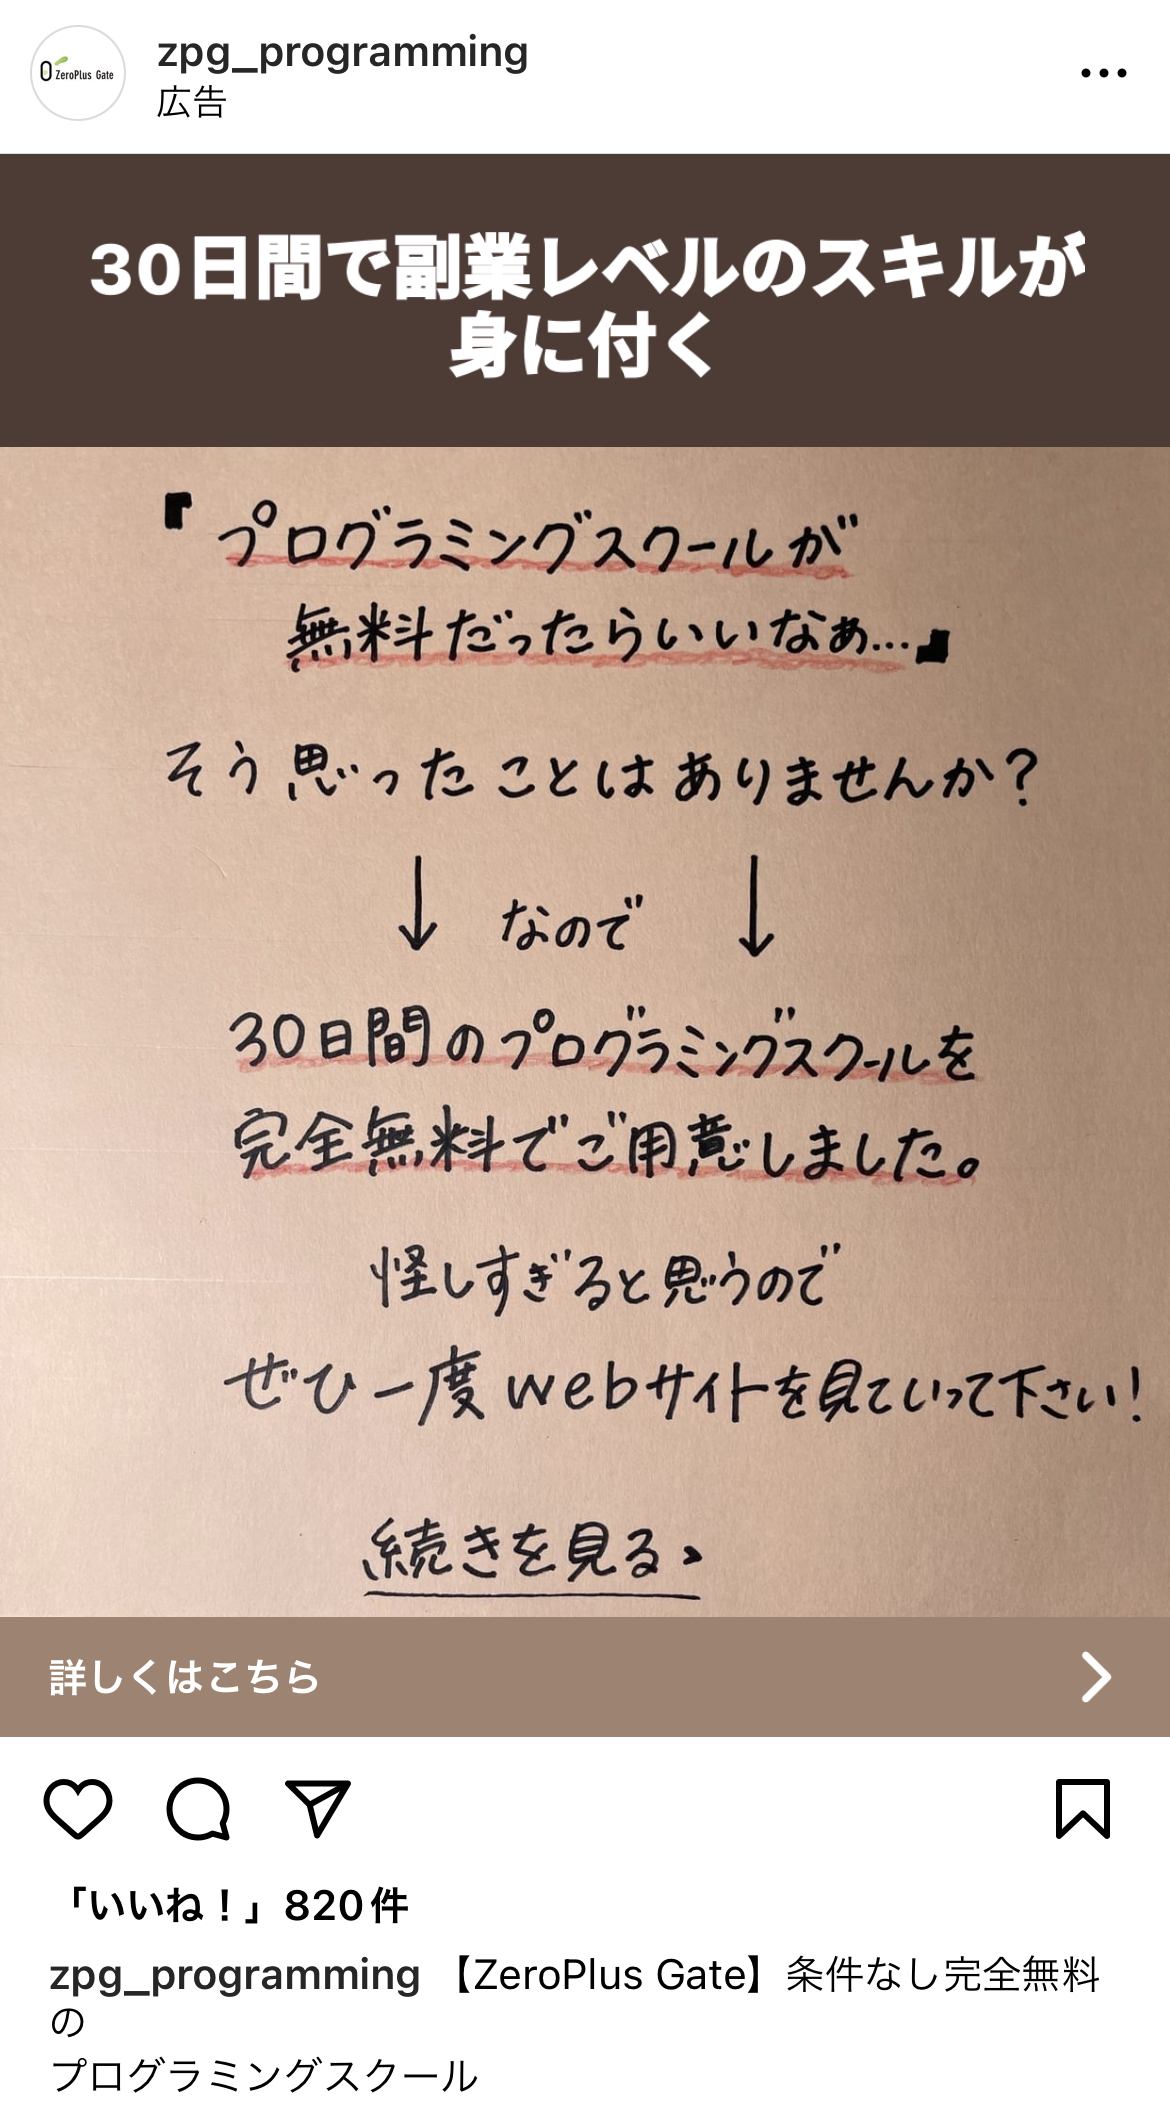 zpg_programming
0 ZeroPlus Gate
広告
30日間で副業レベルのスキルが
身に付く
『プログラミングスクールが
無料だったらいいなぁ...』
そう思ったことはありませんか?
↓ なので ↓
30日間のプログラミングスクールを
完全無料でご用意しました。
怪しすぎると思うので
ぜひ一度webサイトを見ていって下さい!
続きを見る>
詳しくはこちら
「いいね！」820件
zpg_programming 【ZeroPlus Gate】条件なし完全無料
の
プログラミングスクール